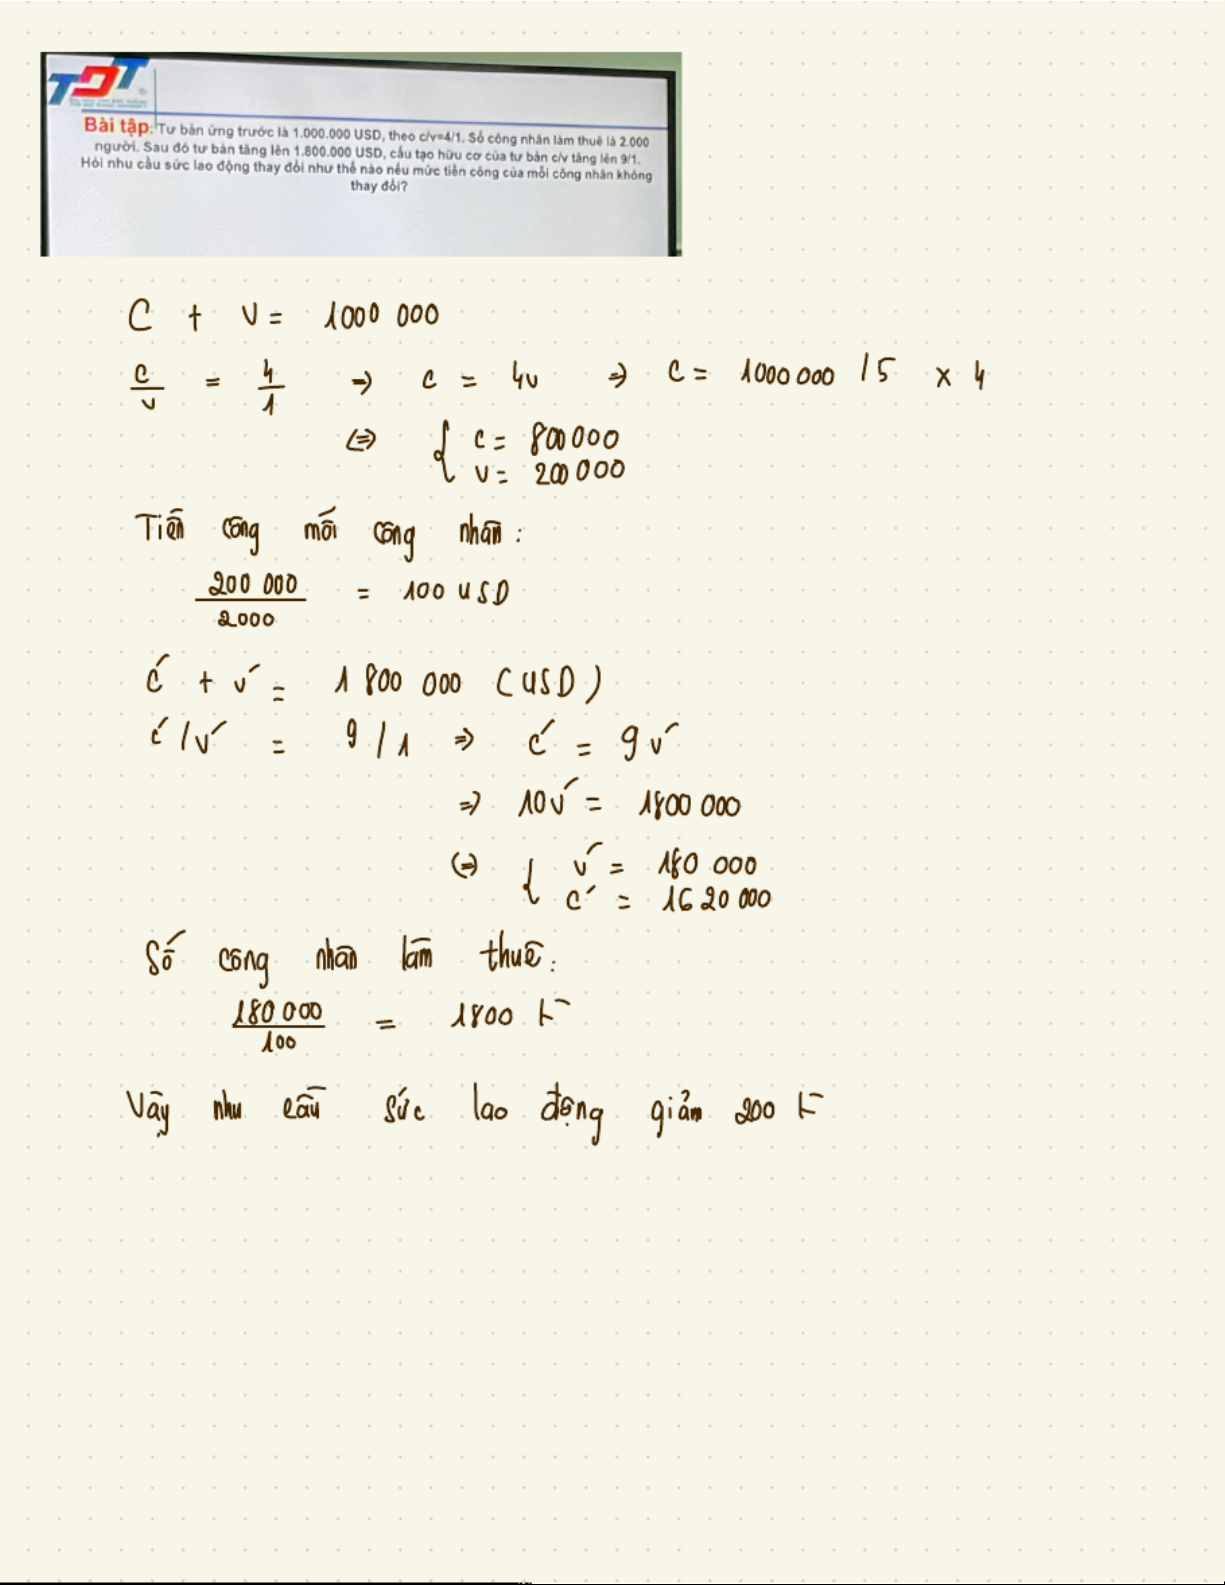 TDT
Bài tập: Tư bản ứng trước là 1.000.000 USD, theo c/v=4/1. Số công nhân làm thuê là 2.000
người. Sau đó tư bản tăng lên 1.800.000 USD, cấu tạo hữu cơ của tư bản c/v tăng lên 9/1.
Hỏi nhu cầu sức lao động thay đổi như thế nào nếu mức tiền công của mỗi công nhân không
thay đổi?
C + v = 1000 000
c/v = 4/1 => c = 4v => c = 1000 000 / 5 x 4
<=> { c = 800 000
v = 200 000
Tiền công mỗi công nhân:
200 000 / 2000 = 100 USD
c' + v' = 1 800 000 (USD)
c'/v' = 9/1 => c' = 9v'
=> 10v' = 1800 000
<=> { v' = 180 000
c' = 1620 000
Số công nhân làm thuê:
180 000 / 100 = 1800
Vậy nhu cầu sức lao động giảm 200